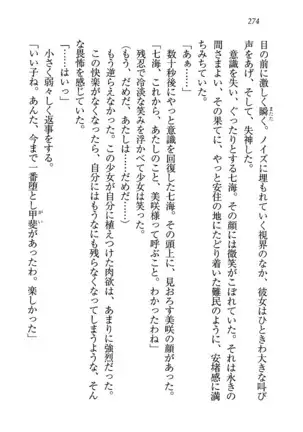 274
目の前に激しく瞬く。ノイズに埋もれていく視界のなか、彼女はひときわ大きな叫び
声をあげ、そして、失神した。
意識を失い、ぐったりとする七海。その顔には微笑がこぼれていた。それは永きの
苦しみのすえ、その果てに、やっと安住の地にたどり着いた難民のような、安堵感に満
ちみちていた。
数十秒後にやっと意識を回復した七海。その頭上に、見おろす美咲の顔があった。
「七海、これから、あたしのこと、美咲様って呼ぶこと。わかったわね」
残忍で冷淡な笑みを浮かべて少女は笑った。
(もう、だめだ、あたしは……だめだ……)
もう逆らえなかった。この少女が自分に植えつけた肉欲は、あまりに強烈だった。
この快楽がなくなったら、自分にはもうなにも残らなくなってしまうような、そん
な恐怖を感じていた。
「……はいっ」
小さく弱々しく返事をする。
「いい子ね。あんた、今まで一番堕とし甲斐があったわ。楽しかった」